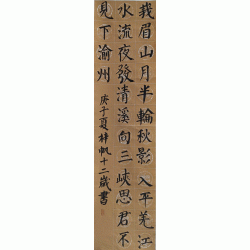 峩眉山月半輪秋影入平羌江
水流夜發清溪向三峽思君不
見下渝州
庚子夏梓帆十二歲書